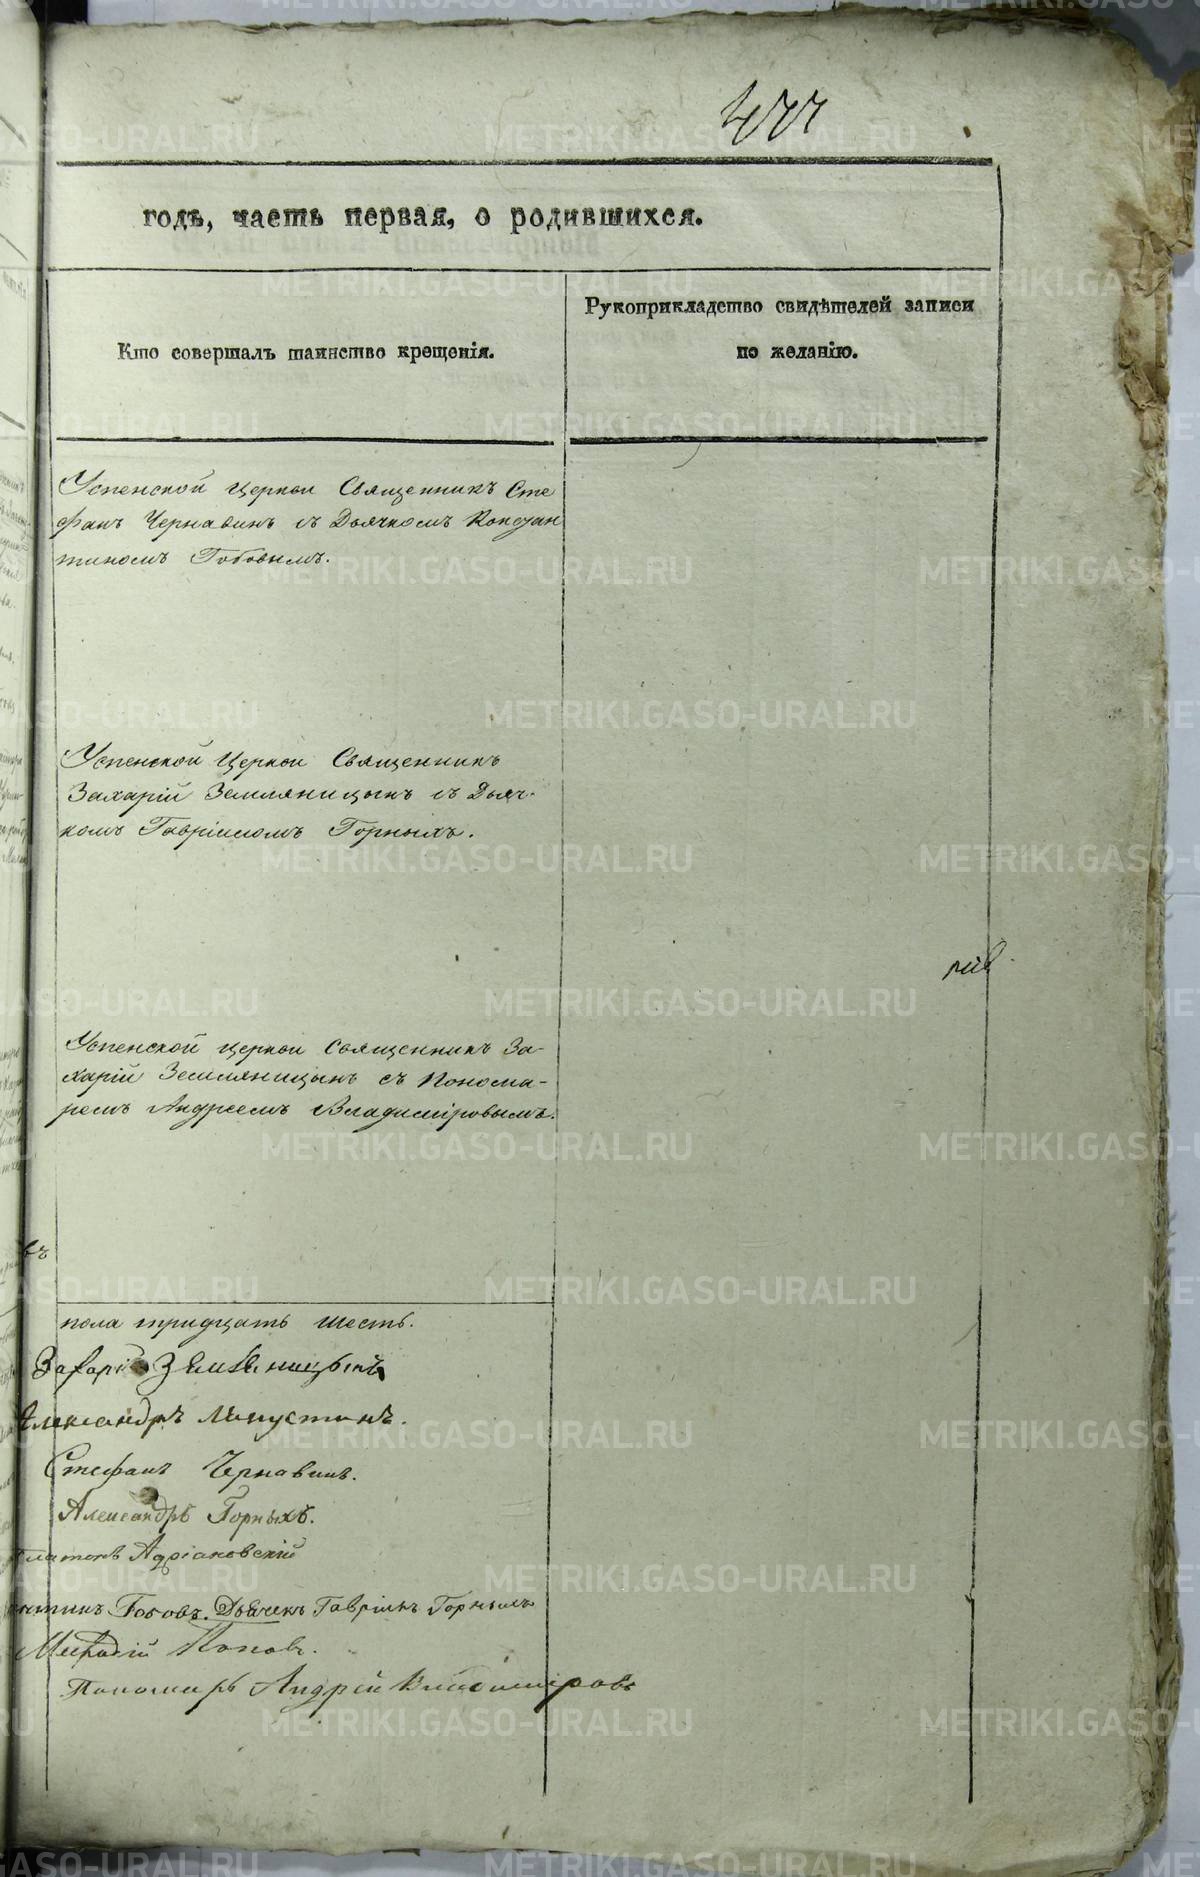 477
годъ, часть первая, о родившихся.
Кто совершалъ таинство крещенія.
Рукоприкладство свидѣтелей записи
по желанію.
Успенской церкви Священникъ Сте
фанъ Чернавинъ съ Дьячкомъ Констан
тиномъ Гобовымъ.
Успенской церкви Священникъ
Захарій Земляницынъ съ Дьяч-
комъ Гавріиломъ Горныхъ.
Успенской церкви Священникъ За-
харій Земляницынъ съ Понома-
ремъ Андреемъ Владиміровымъ.
въ
пола тридцать шесть.
Захарій Земляницынъ
Александръ Лапустинъ.
Стефанъ Чернавинъ.
Александръ Горныхъ.
Адріановскій
Гобовъ. Дьячекъ Гавріилъ Горныхъ
Поповъ.
Пономарь Андрей Владиміровъ
METRIKI.GASO-URAL.RU